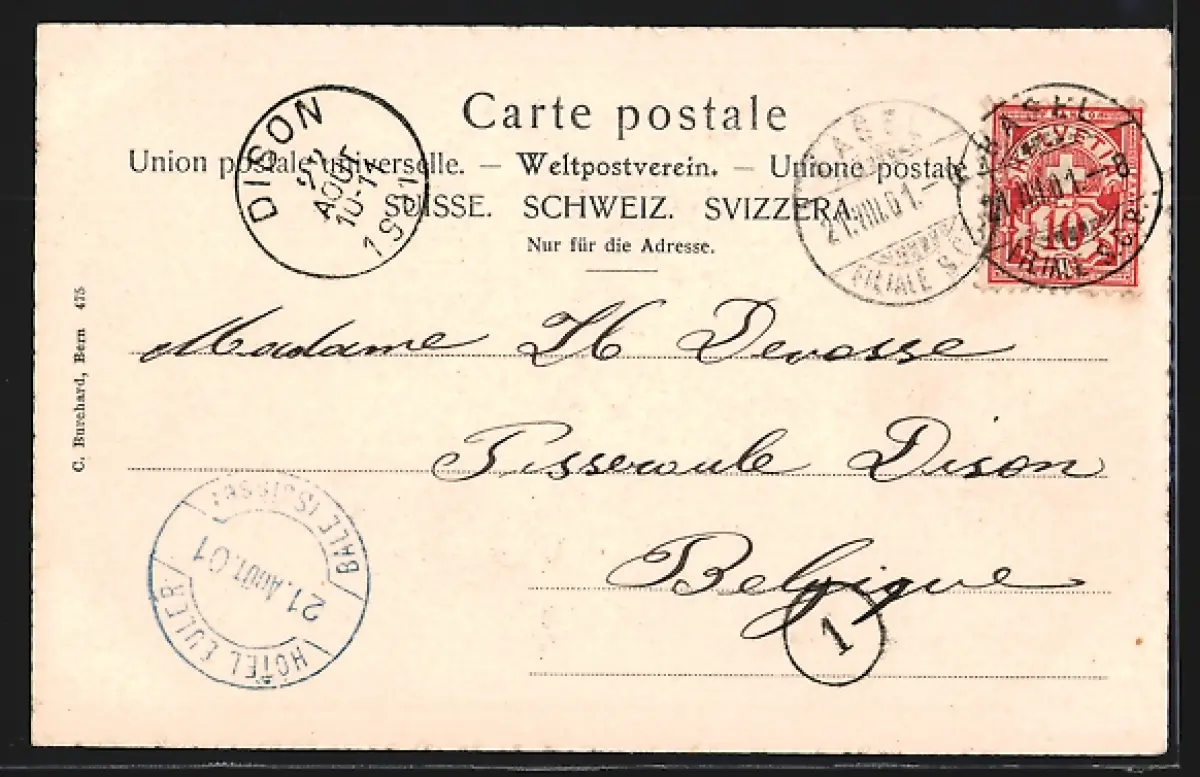 Carte postale
Union postale universelle. — Weltpostverein. — Unione postale
SUISSE. SCHWEIZ. SVIZZERA.
Nur für die Adresse.
DISON
22
AOUT
10-1
1901
BASEL
21.VIII.01.-8
FILIALE S.C.B.
HELVETIA
10
BASEL
21.VIII.01.-8
FILIALE S.C.B.
Madame H Devosse
Dison
Belgique
1
HOTEL EULER
21.AOUT.01
BALE (SUISSE)
C. Burchard, Bern 475